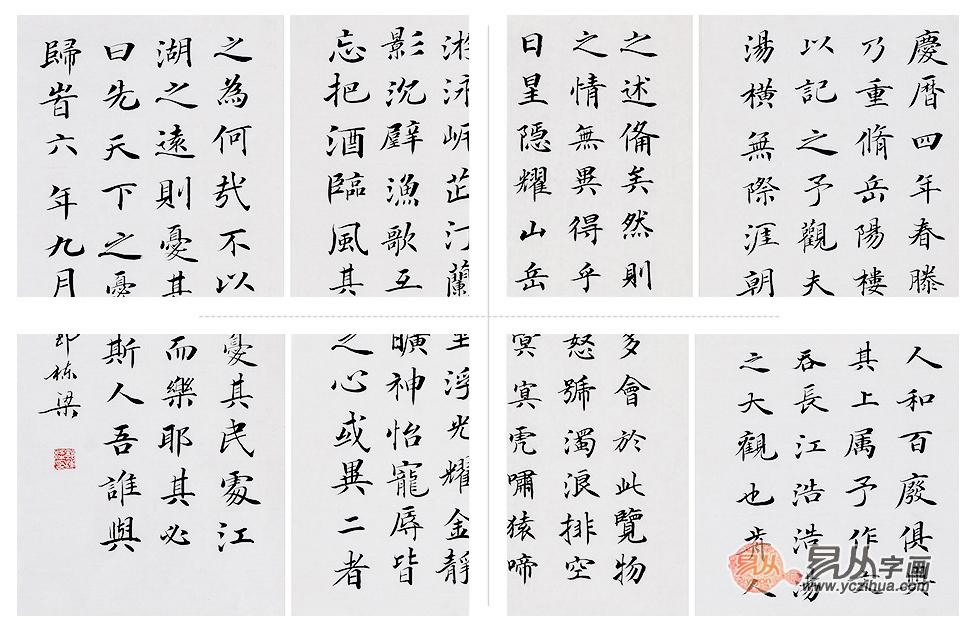 慶曆四年春滕
乃重脩岳陽樓
以記之予觀夫
湯橫無際涯朝
之述俻矣然則
之情無異得乎
日星隠耀山岳
游泳岸芷汀蘭
影沉璧漁歌互
忘把酒臨風其
之為何哉不以
湖之遠則憂其
曰先天下之憂
歸旹六年九月
人和百廢俱興
其上属予作文
吞長江浩浩湯
之大觀也前人
多會於此覽物
怒號濁浪排空
冥冥虎嘯猿啼
浮光耀金靜
曠神怡寵辱皆
之心或異二者
憂其民處江
而樂耶其必
斯人吾誰與
郎栋梁
易从字画
www.yczihua.com